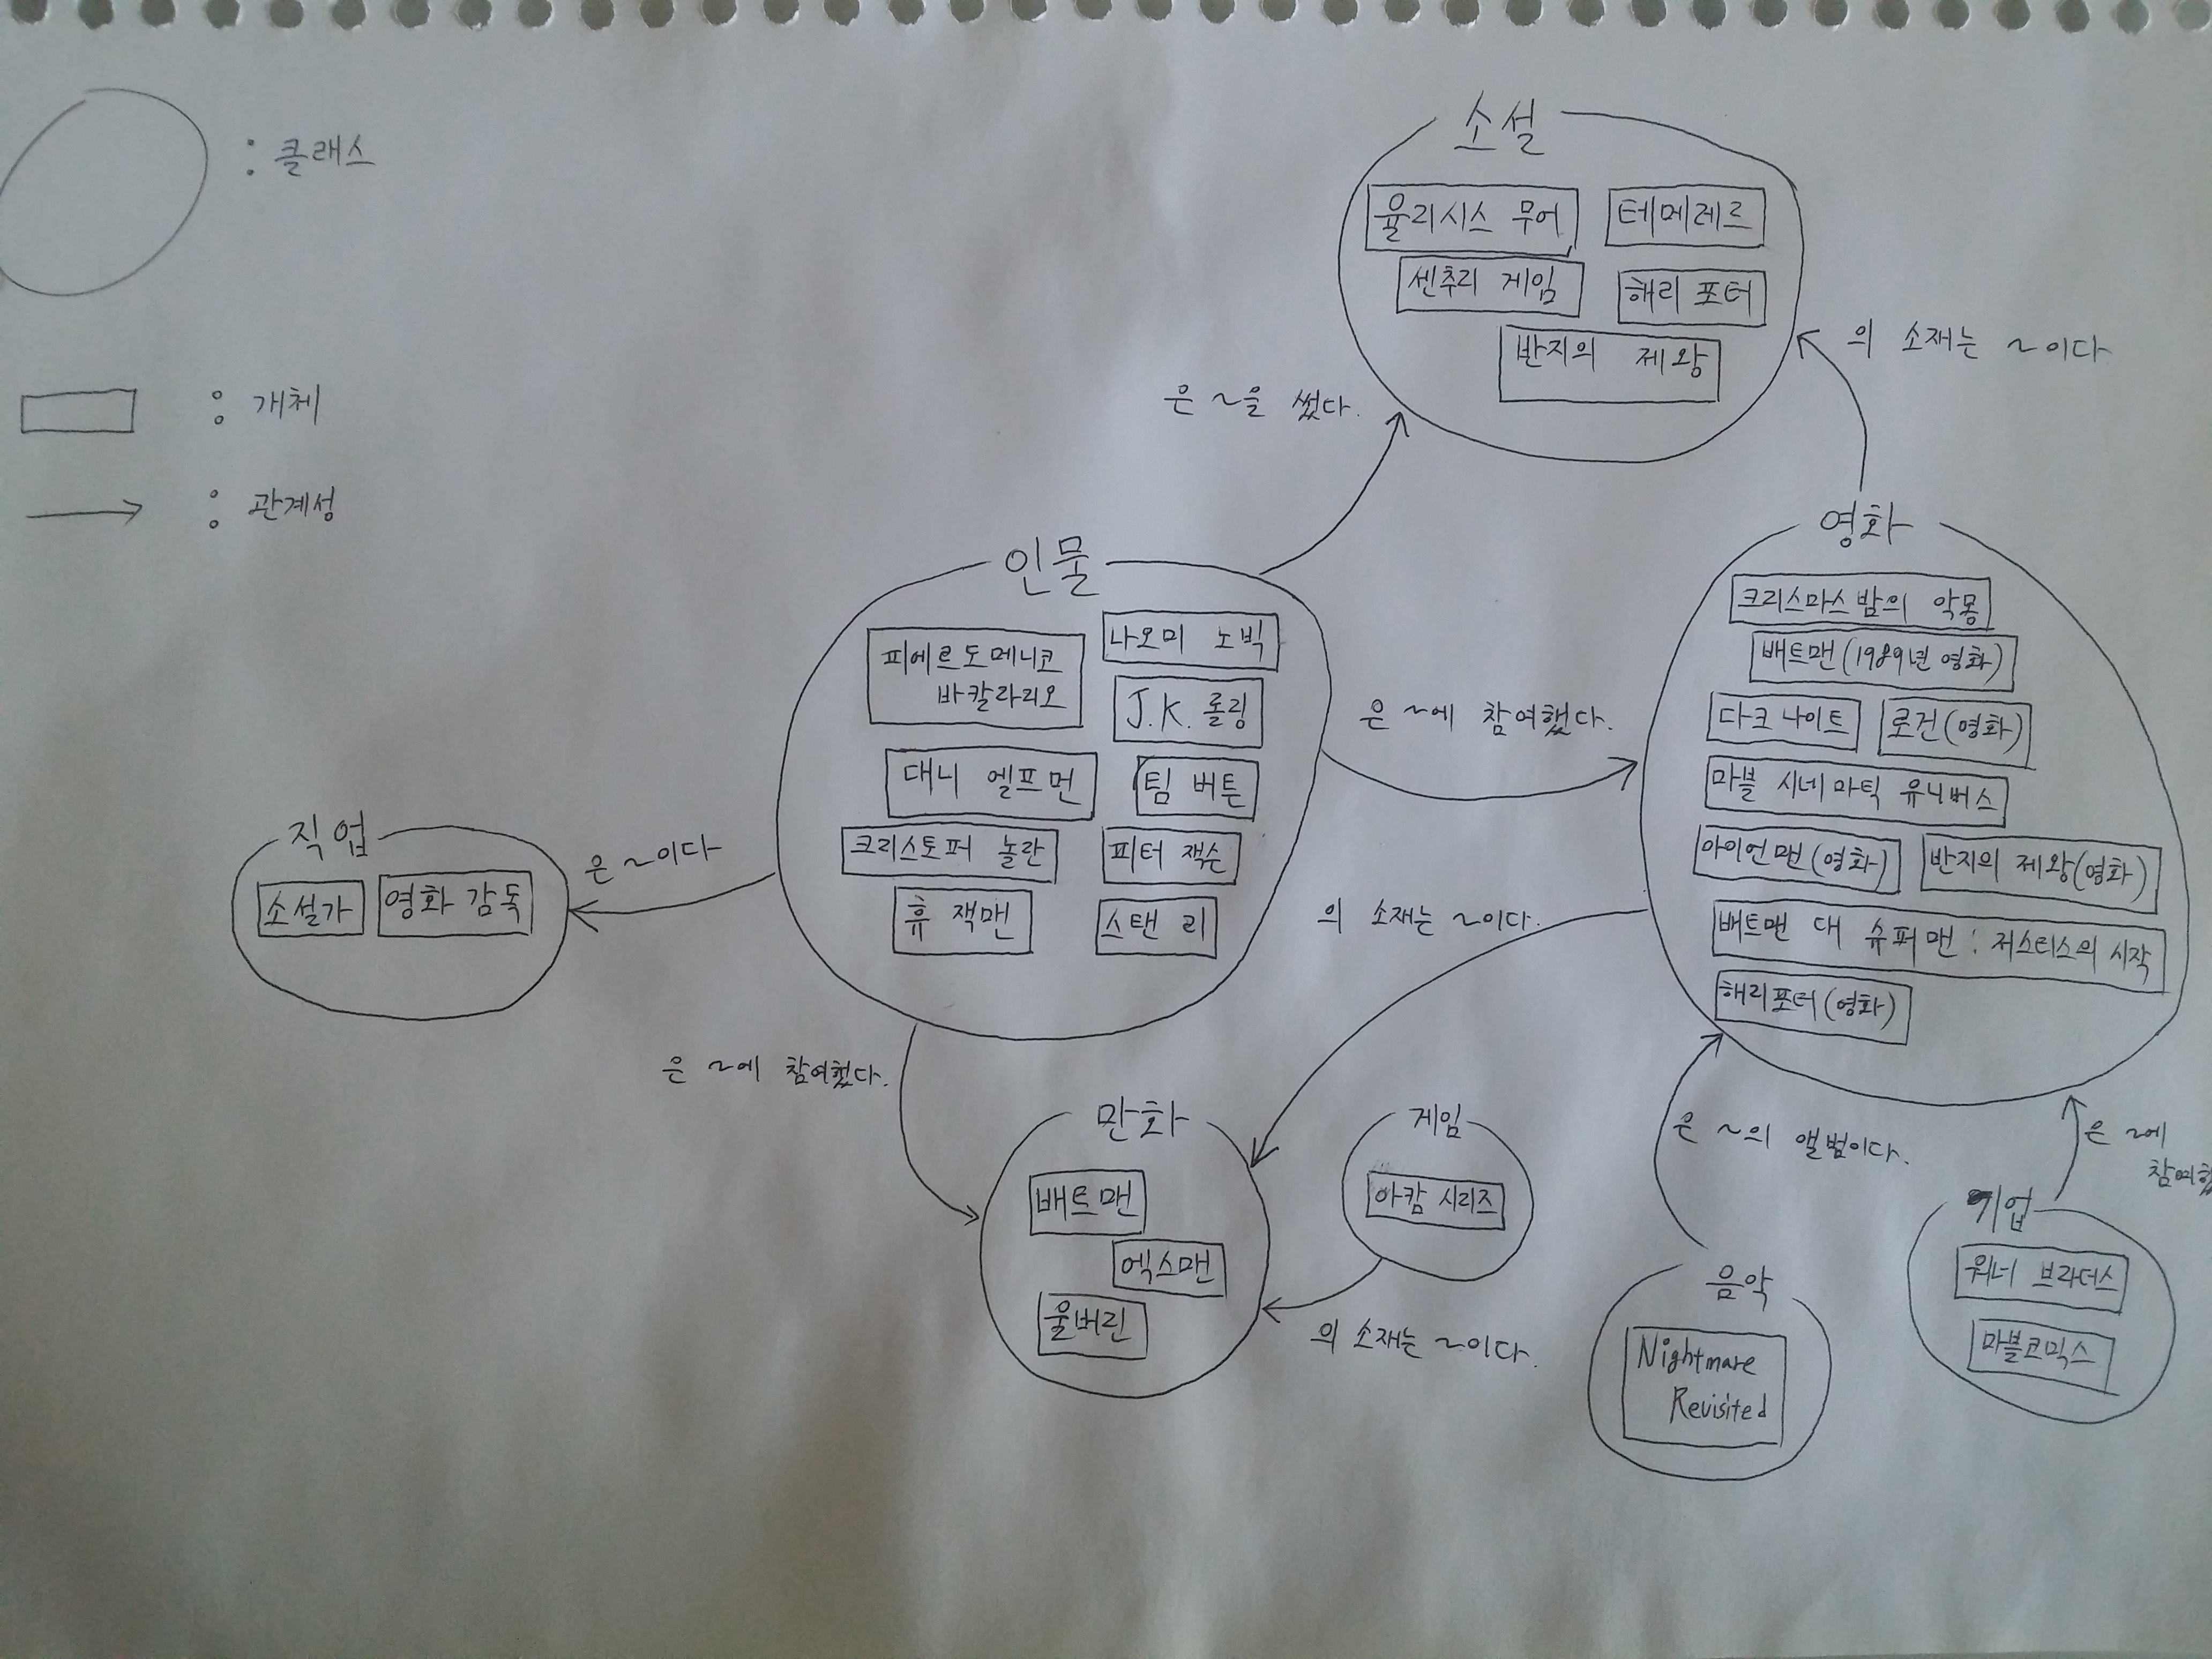 : 클래스
: 개체
: 관계성
소설
율리시스 무어
테메레르
센추리 게임
해리 포터
반지의 제왕
은 ~을 썼다.
의 소재는 ~이다
인물
피에르도메니코
바칼라리오
나오미 노빅
J.K. 롤링
대니 엘프먼
팀 버튼
크리스토퍼 놀란
피터 잭슨
휴 잭맨
스탠 리
은 ~에 참여했다.
영화
크리스마스 밤의 악몽
배트맨(1989년 영화)
다크 나이트
로건(영화)
마블 시네마틱 유니버스
아이언맨(영화)
반지의 제왕(영화)
배트맨 대 슈퍼맨 : 저스티스의 시작
해리포터(영화)
직업
소설가
영화 감독
은 ~이다
의 소재는 ~이다.
은 ~에 참여했다.
만화
배트맨
엑스맨
울버린
게임
아캄 시리즈
의 소재는 ~이다.
은 ~의 앨범이다.
음악
Nightmare
Revisited
은 ~에
참여했
기업
워너 브라더스
마블코믹스